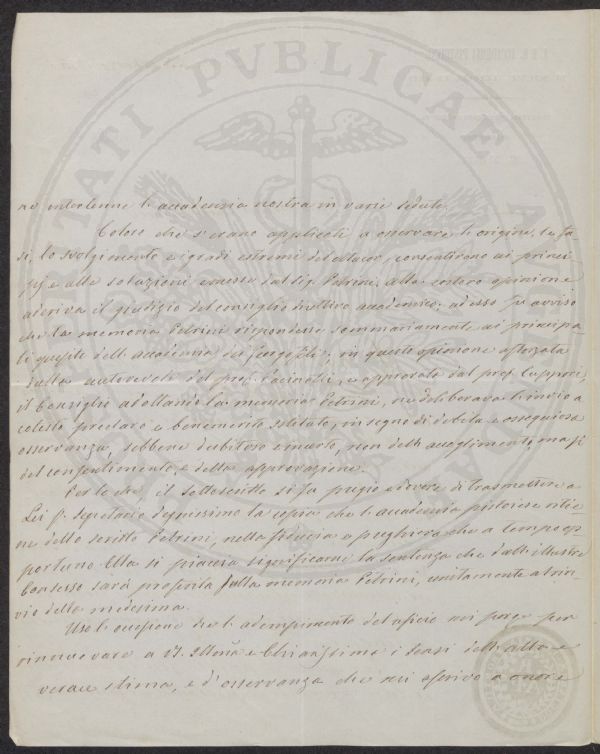 PVBLICAE
ne intertenne l'accademia nostra in varie sedute.
Coloro che s'erano applicati a osservare l'origine, le fa-
si, lo svolgimento e i gradi estremi del consentirono ai princi
pj e alle soluzioni emesse dal Sig. Petrini; alla costoro opinione
aderiva il giudizio del consiglio direttivo accademico; ed esso fu avviso
che la memoria Petrini rispondesse sommariamente ai principa
li quesiti dell'accademia dei Georgofili; in questa opinione afforzata
dalla autorevole del prof. Pacinotti, e approvata dal prof.
il Consiglio adottando la memoria Petrini, ne deliberava l'invio a
cotesto preclaro e benemerito Istituto, in segno di debita e ossequiosa
osservanza, sebbene dubitoso e incerto, non dell'accoglimento, ma sì
del consentimento, e della approvazione.
Per lo che, il sottoscritto si fa pregio e dovere di trasmettere a
Lei Sig. Segretario degnissimo la copia che l'accademia pistoiese ritie
ne dello scritto Petrini, nella fiducia e preghiera che a tempo op-
portuno Ella si piaccia significarmi la sentenza che dall'illustre
Consesso sarà proferita sulla memoria Petrini, unitamente al rin-
vio della medesima.
Uso l'occasione che l'adempimento del uficio mi porge per
rinnuovare a VS. Illma e Chiarissima i sensi dell'alta e
verace stima, e d'osservanza che mi ascrivo a onore